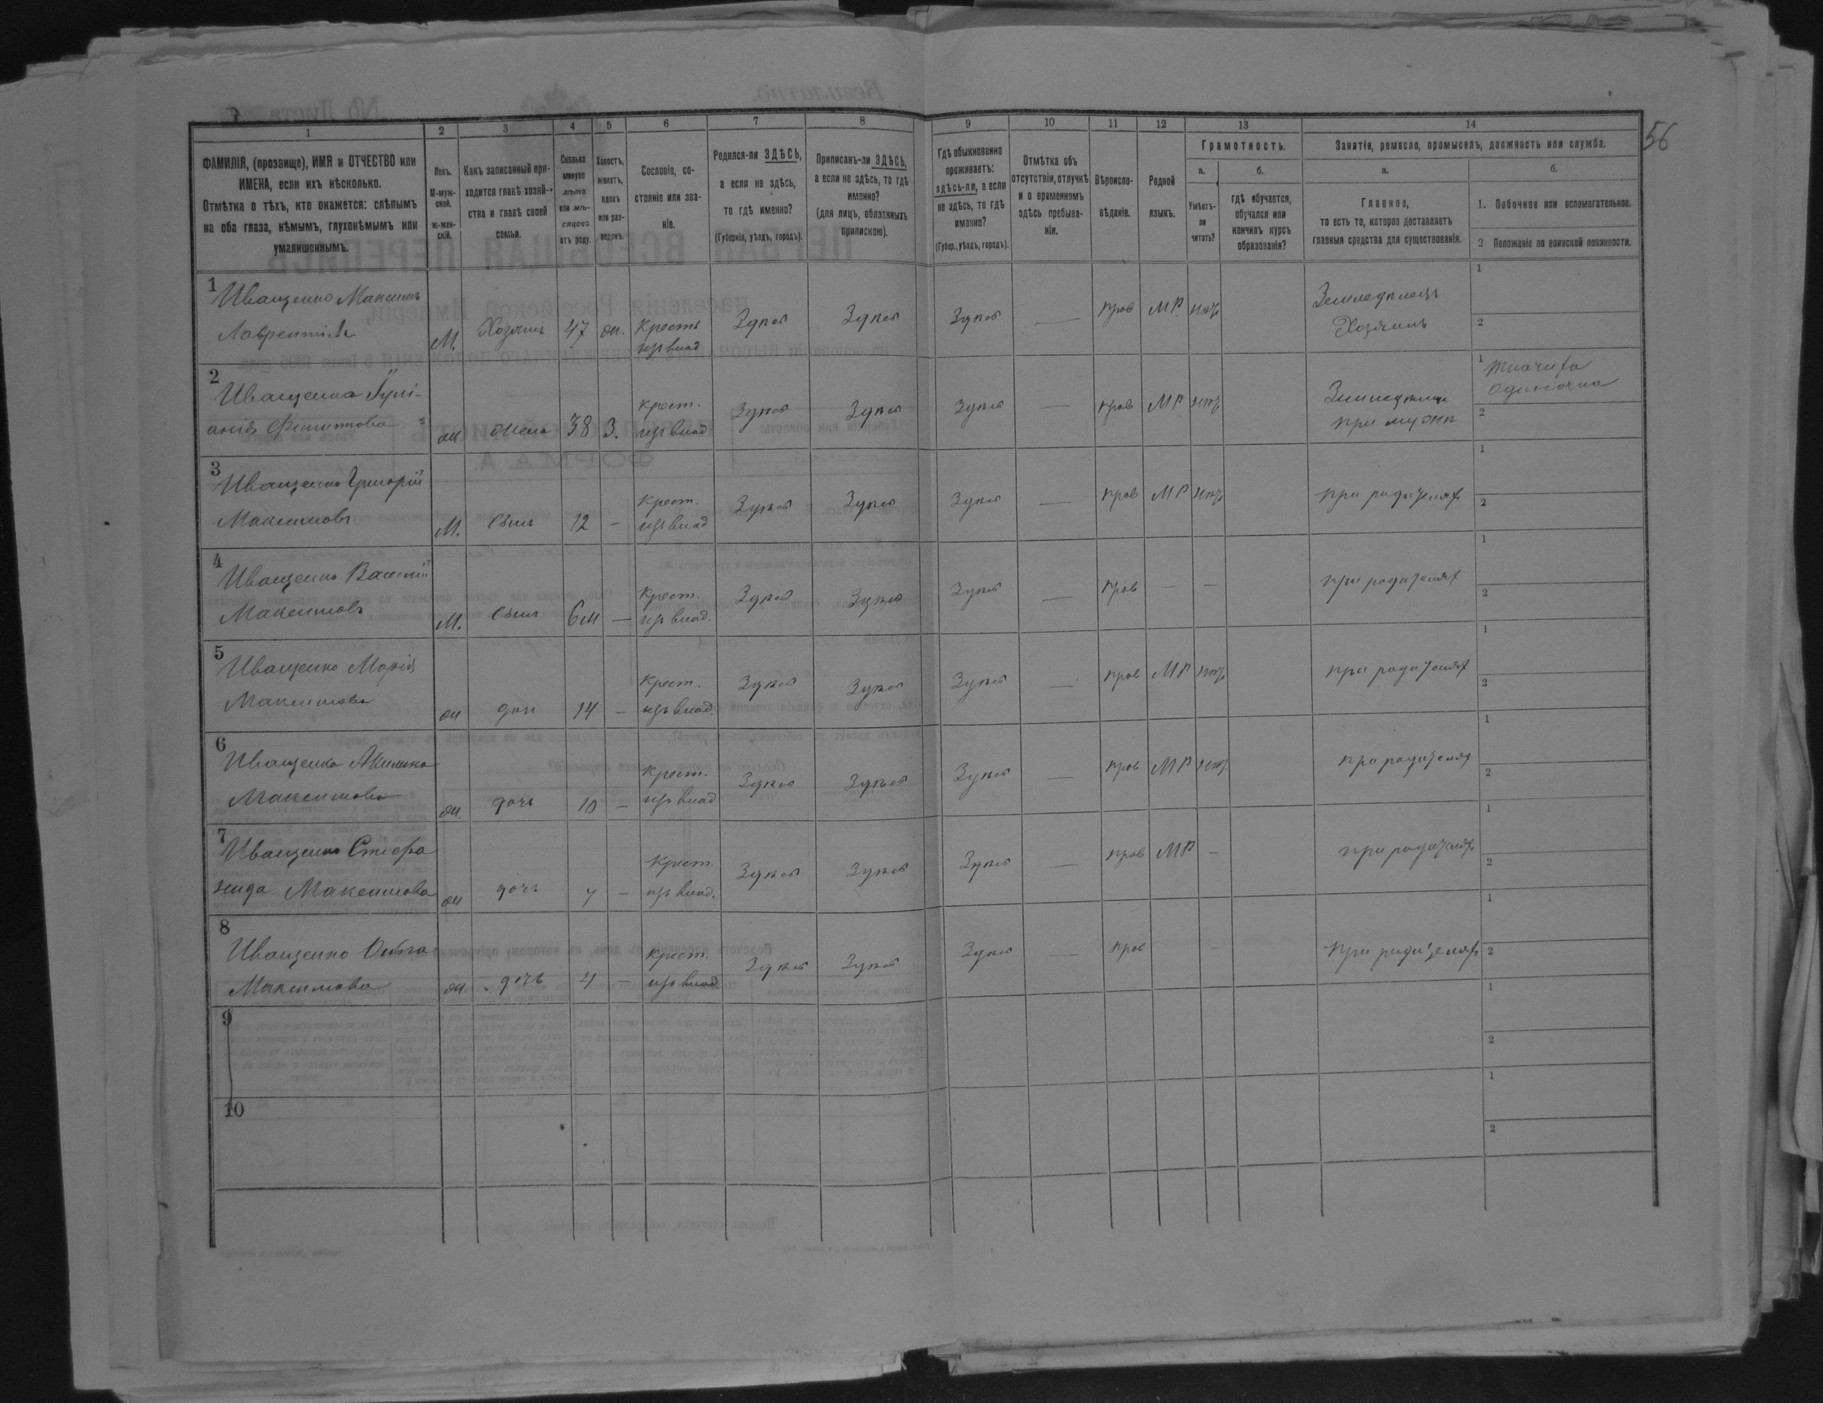 56
1 2 3 4 5 6 7 8 9 10 11 12 13 14
ФАМИЛІЯ, (прозвище), ИМЯ и ОТЧЕСТВО или ИМЕНА, если ихъ нѣсколько.
Отмѣтка о тѣхъ, кто окажется: слѣпымъ на оба глаза, нѣмымъ, глухонѣмымъ или умалишеннымъ.
Полъ. М-муж-ской. Ж-жен-скій.
Какъ записанный при-ходится главѣ хозяй-ства и главѣ своей семьи.
Сколько минуло лѣтъ или мѣ-сяцевъ отъ роду.
Холостъ, женатъ, вдовъ или раз-веденъ.
Сословіе, со-стояніе или зва-ніе.
Родился-ли ЗДѢСЬ, а если не здѣсь, то гдѣ именно?
(Губернія, уѣздъ, городъ).
Приписанъ-ли ЗДѢСЬ, а если не здѣсь, то гдѣ именно?
(для лицъ, обязанныхъ припискою).
Гдѣ обыкновенно проживаетъ: здѣсь-ли, а если не здѣсь, то гдѣ именно?
(Губер., уѣздъ, городъ).
Отмѣтка объ отсутствіи, отлучкѣ и о временномъ здѣсь пребыва-ніи.
Вѣроиспо-вѣданіе.
Родной языкъ.
Грамотность.
а. Умѣетъ-ли читать?
б. гдѣ обучается, обучался или кончилъ курсъ образованія?
Занятія, ремесло, промыселъ, должность или служба.
а. Главное, то есть то, которое доставляетъ главныя средства для существованія.
б. 1. Побочное или вспомогательное.
2 Положеніе по воинской повинности.
1 Иващенко Максимъ
Лаврентіевъ М. Хозяинъ 47 ж. Крест. изъ влад Здѣсь Здѣсь Здѣсь — Прав МР. нѣтъ Земледѣлецъ Хозяинъ 1 2
2 Иващенко
Филиппова ж жена 38 З. Крест. изъ влад Здѣсь Здѣсь Здѣсь — прав МР нѣтъ при мужѣ 1 Ткачиха одиночка 2
3 Иващенко Григорій
Максимовъ М. Сынъ 12 — Крест. изъ влад Здѣсь Здѣсь Здѣсь — прав МР нѣтъ при родителях 1 2
4 Иващенко Василій
Максимовъ М. Сынъ 6м — Крест. изъ влад. Здѣсь Здѣсь Здѣсь — прав — — при родителях 1 2
5 Иващенко Марія
Максимова ж доч 14 — Крест. изъ влад. Здѣсь Здѣсь Здѣсь — прав МР нѣтъ при родителях 1 2
6 Иващенко Акилина
Максимова ж дочь 10 — Крест. изъ влад Здѣсь Здѣсь Здѣсь — прав МР нѣтъ при родителях 1 2
7 Иващенко Стефа
нида Максимова ж дочь 7 — Крест. изъ влад. Здѣсь Здѣсь Здѣсь — прав МР — при родителях 1 2
8 Иващенко Ольга
Максимова ж дочь 4 — Крест. изъ влад Здѣсь Здѣсь Здѣсь — прав — при родителях 1 2
9 1 2
10 1 2